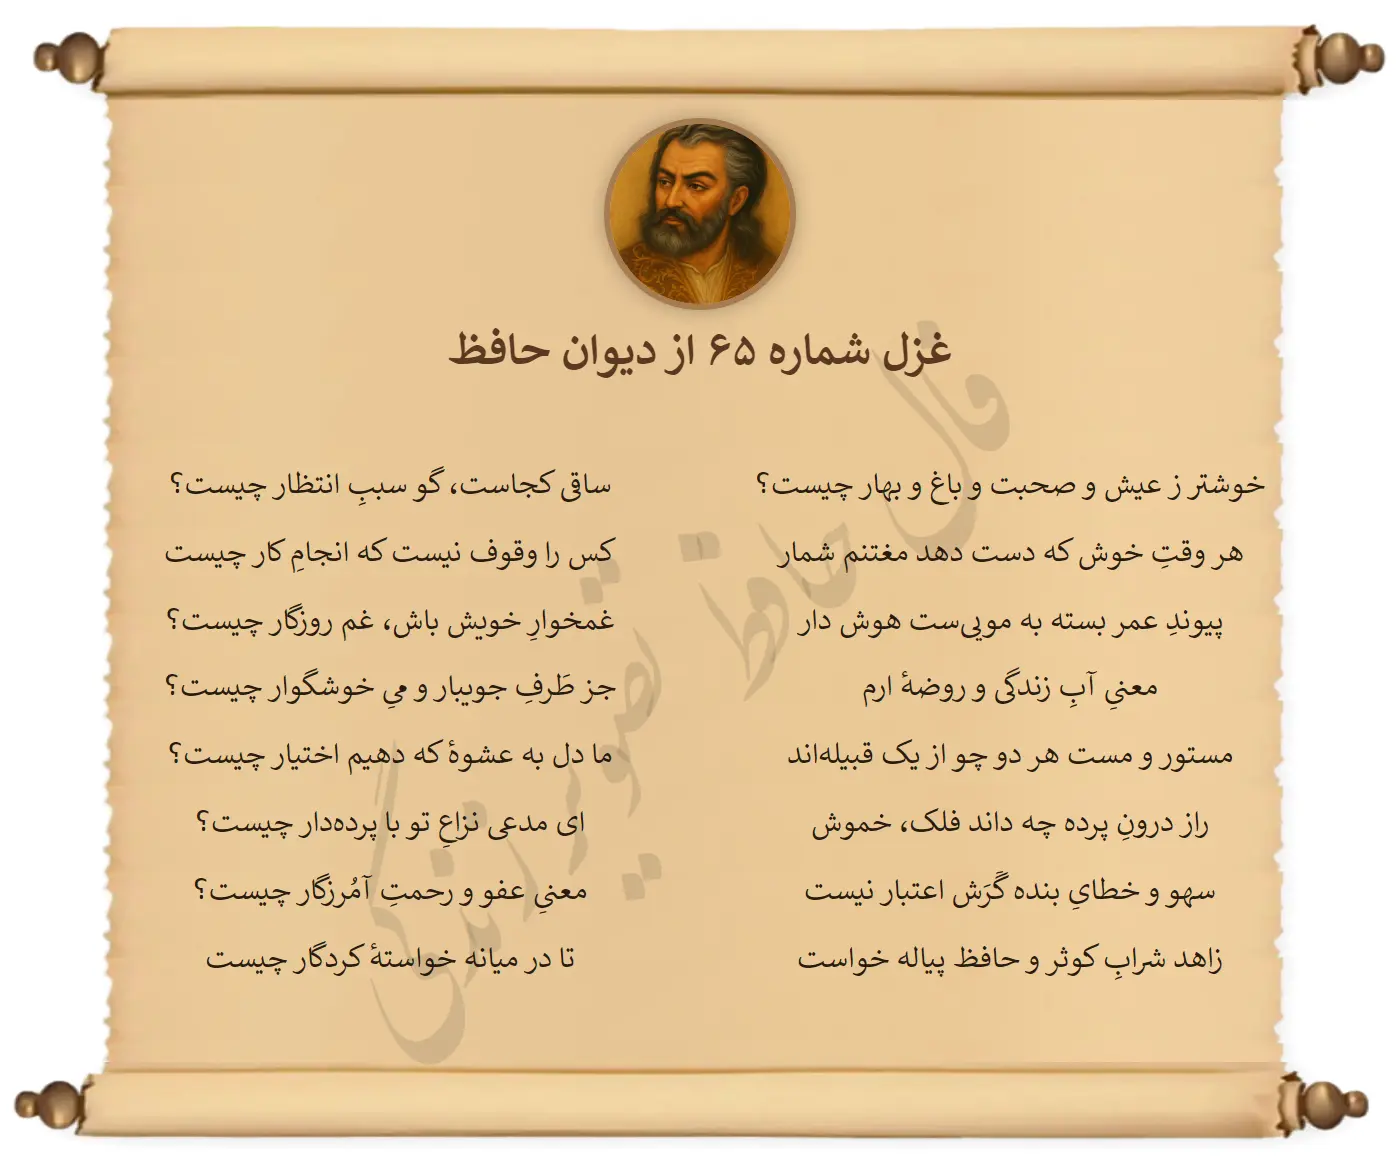 غزل شماره ۶۵ از دیوان حافظ
خوشتر ز عیش و صحبت و باغ و بهار چیست؟
ساقی کجاست، گو سببِ انتظار چیست؟
هر وقتِ خوش که دست دهد مغتنم شمار
کس را وقوف نیست که انجامِ کار چیست
پیوندِ عمر بسته به مویی‌ست هوش دار
غمخوارِ خویش باش، غم روزگار چیست؟
معنیِ آبِ زندگی و روضهٔ ارم
جز طَرفِ جویبار و میِ خوشگوار چیست؟
مستور و مست هر دو چو از یک قبیله‌اند
ما دل به عشوهٔ که دهیم اختیار چیست؟
راز درونِ پرده چه داند فلک، خموش
ای مدعی نزاعِ تو با پرده‌دار چیست؟
سهو و خطایِ بنده گَرَش اعتبار نیست
معنیِ عفو و رحمتِ آمُرزگار چیست؟
زاهد شرابِ کوثر و حافظ پیاله خواست
تا در میانه خواستهٔ کردگار چیست
فال حافظ تصویر زندگی